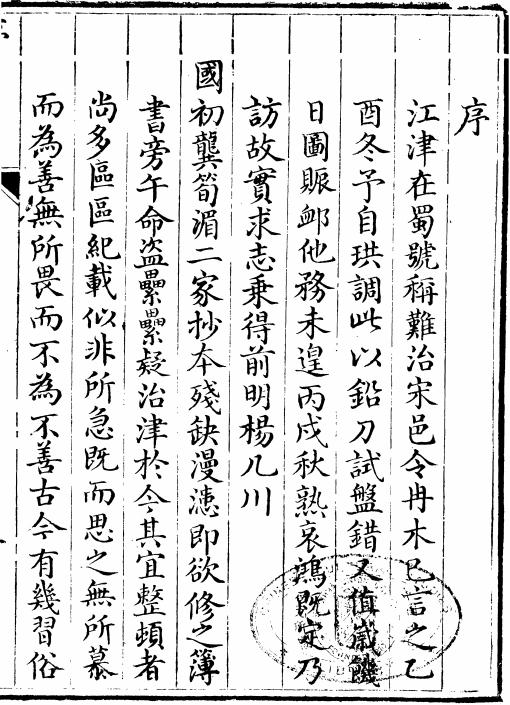 序
江津在蜀號稱難治宋邑令冉木已言之乙
酉冬予自珙調此以鉛刀試盤錯又值嵗饑
日圖賑卹他務未遑丙戍秋熟哀鴻既定乃
訪故實求志乗得前明楊几川
國初龔筍湄二家抄本殘缺漫漶即欲修之簿
書旁午命盗纍纍疑治津於今其宜整頓者
尚多區區紀載似非所急既而思之無所慕
而為善無所畏而不為不善古今有幾習俗